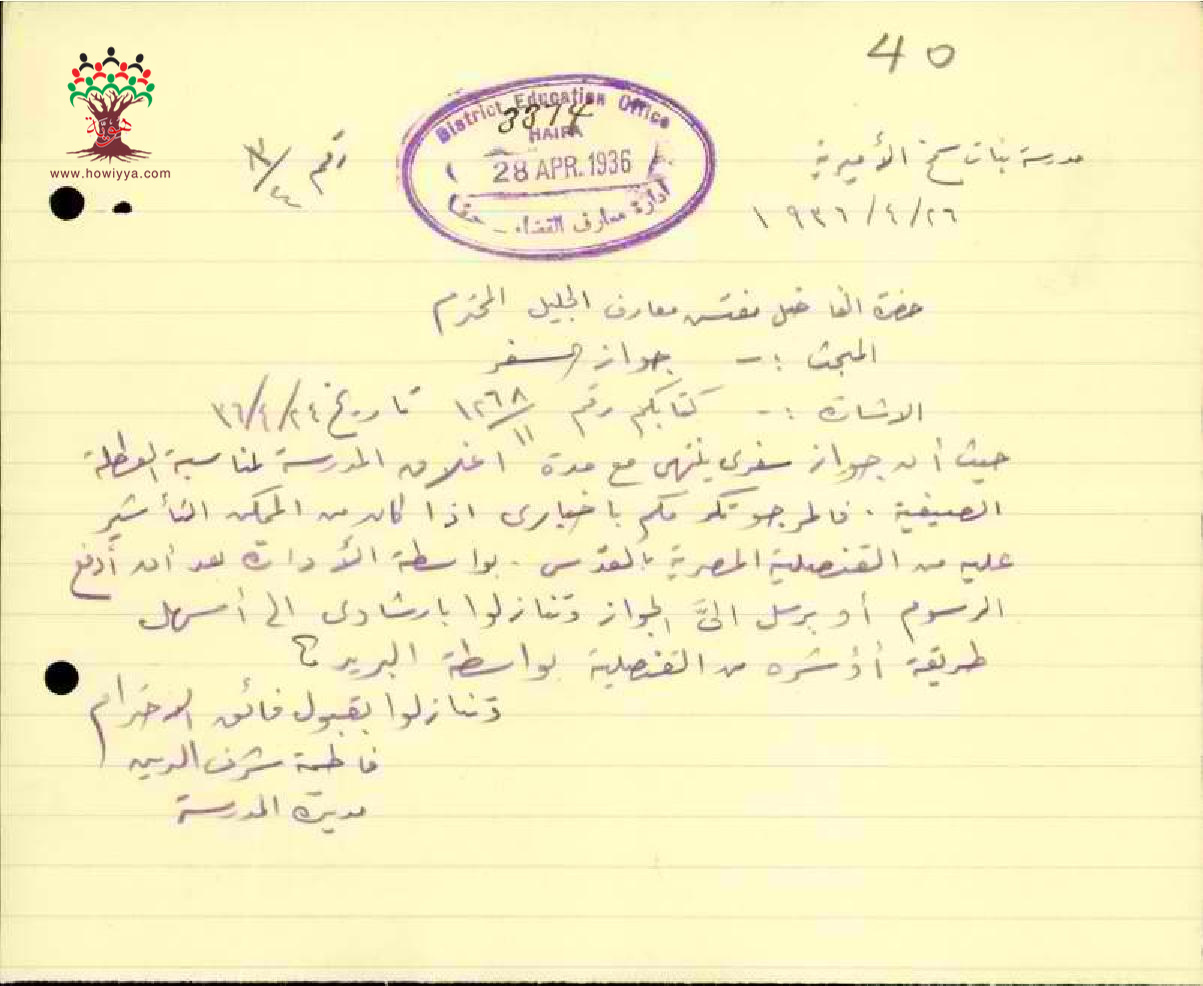 40
هوية
www.howiyya.com
District Education Office
3374
HAIFA
28 APR. 1936
ادارة معارف القضاء - حيفا
مدرسة بنات سمخ الأميرية
رقم
٢٦/٤/١٩٣٦
حضرة الفاضل مفتش معارف الجليل المحترم
المبحث :- جواز السفر
الاشارة :- كتابكم رقم ١٢٦٨/١١ تاريخ ٢٤/٤/٣٦
حيث أن جواز سفري ينتهي مع مدة اغلاق المدرسة لمناسبة العطلة
الصيفية . فالمرجو تكرمكم باخباري اذا كان من الممكن التأشير
عليه من القنصلية المصرية بالقدس . بواسطة الأدارة بعد أن أدفع
الرسوم أو يرسل اليَّ الجواز وتنازلوا بارشادي الى أسهل
طريقة أؤشره من القنصلية بواسطة البريد ؟
وتنازلوا بقبول فائق الاحترام
فاطمة شرف الدين
مديرة المدرسة